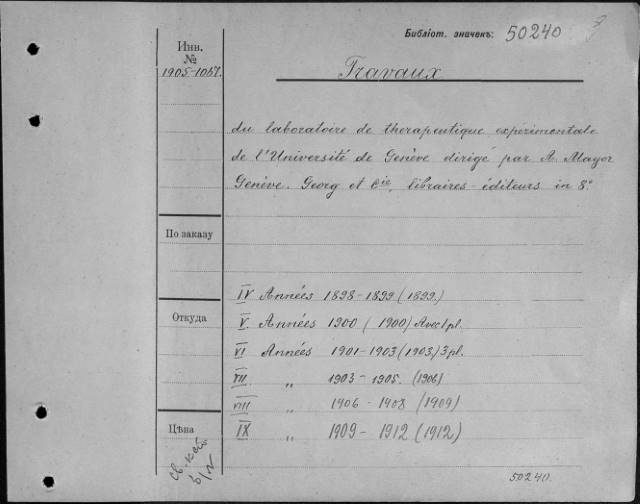 Библіот. значекъ: 50240
Инв.
№
1905-1057.
Travaux
du laboratoire de therapeutique expérimentale
de l'Université de Genève dirigé par A. Mayor
Genève. Georg et Cie, libraires-éditeurs in 8°
По заказу
IV Années 1898-1899 (1899.)
Откуда
V. Années 1900 (1900) Avec 1 pl.
VI Années 1901-1903 (1903) 3 pl.
VII. " 1903-1905. (1906)
VIII " 1906-1908 (1909)
Цѣна
IX " 1909-1912 (1912)
50240.